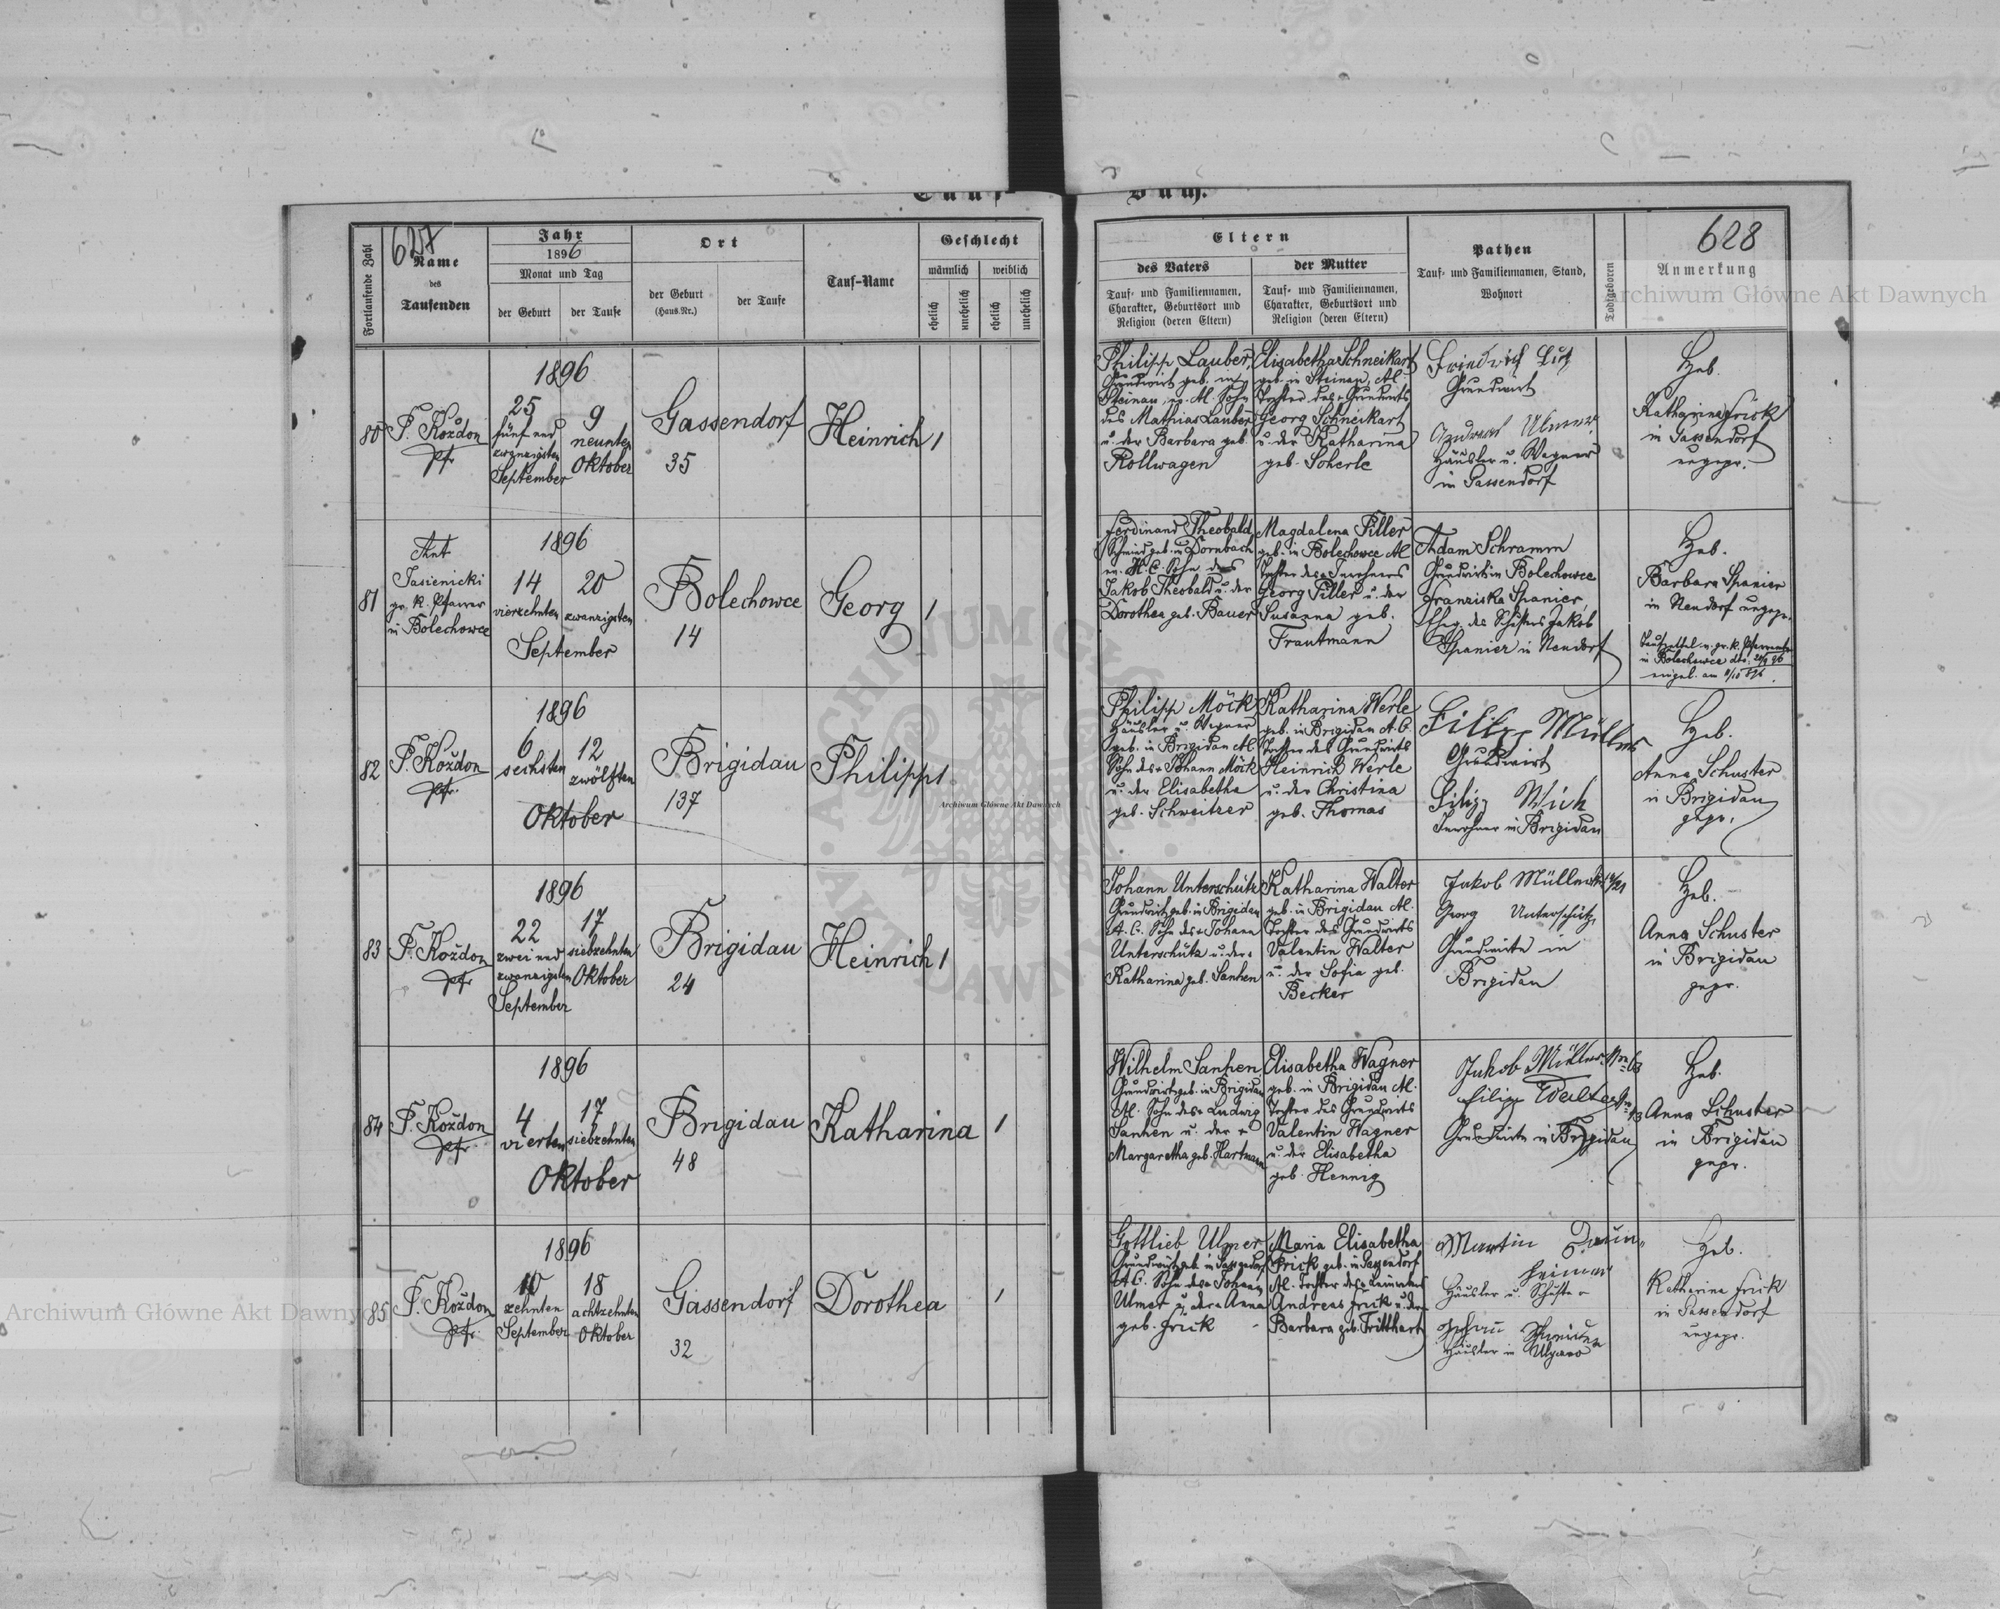 Tauf
Buch.
627
628
Fortlaufende Zahl
Name
des
Taufenden
Jahr
1896
Monat und Tag
der Geburt
der Taufe
Ort
der Geburt
(Haus-Nr.)
der Taufe
Tauf-Name
Geschlecht
männlich
weiblich
ehelich
unehelich
ehelich
unehelich
Eltern
des Vaters
Tauf- und Familiennamen,
Charakter, Geburtsort und
Religion (deren Eltern)
der Mutter
Tauf- und Familiennamen,
Charakter, Geburtsort und
Religion (deren Eltern)
Pathen
Tauf- und Familiennamen, Stand,
Wohnort
Todtgeboren
Anmerkung
80
F. Koždon
Pfr
1896
25
fünf und
zwanzigsten
September
9
neunten
Oktober
Gassendorf
35
Heinrich
1
Philipp Lauber,
Grundwirt geb. in
Steinau, ev. A.C. Sohn
des Mathias Lauber
u. der Barbara geb.
Rollwagen
Elisabetha Schneikart
geb. in Steinau, A.C.
Tochter des Grundwirts
Georg Schneikart
u. der Katharina
geb. Soherle
Friedrich Lutz
Grundwirt
Andreas Ulmer
Häusler u. Wagner
in Gassendorf
Heb.
Katharina Frick
in Gassendorf
ungepr.
81
Ant
Jasienicki
gr. k. Pfarrer
in Bolechowce
1896
14
vierzehnten
20
zwanzigsten
September
Bolechowce
14
Georg
1
Ferdinand Theobald
Schmied geb. in Dornbach
ev. H.C. Sohn des
Jakob Theobald u. der
Dorothea geb. Bauer
Magdalena Piller
geb. in Bolechowce A.C.
Tochter des Inwohners
Georg Piller u. der
Susanna geb.
Trautmann
Adam Schramm
Grundwirt in Bolechowce
Franziska Spanier,
Eheg. des Schusters Jakob
Spanier in Neudorf
Heb.
Barbara Spanier
in Neudorf ungepr.
Taufzettel v. gr. k. Pfarramte
in Bolechowce dto. 20/9 96
eingel. am 8/10 896.
82
F. Koždon
Pfr.
1896
6
sechsten
12
zwölften
Oktober
Brigidau
137
Philipp
1
Philipp Möck
Häusler u. Wagner
geb. in Brigidau A.C.
Sohn des + Johann Möck
u. der Elisabetha
geb. Schweitzer
Katharina Werle
geb. in Brigidau A.C.
Tochter des Grundwirts
Heinrich Werle
u. der Christina
geb. Thomas
Filipp Müller
Grundwirt
Filipp Wick
Inwohner in Brigidau
Heb.
Anna Schuster
in Brigidau
gepr.
83
F. Koždon
Pfr
1896
22
zwei und
zwanzigsten
September
17
siebzehnten
Oktober
Brigidau
24
Heinrich
1
Johann Unterschütz
Grundwirt geb. in Brigidau
A.C. Sohn des + Johann
Unterschütz u. der +
Katharina geb. Sanken
Katharina Walter
geb. in Brigidau A.C.
Tochter des Grundwirts
Valentin Walter
u. der Sofia geb.
Becker
Jakob Müller
Georg Unterschütz
Grundwirte in
Brigidau
Heb.
Anna Schuster
in Brigidau
gepr.
84
F. Koždon
Pfr
1896
4
vierten
17
siebzehnten
Oktober
Brigidau
48
Katharina
1
Wilhelm Sanken
Grundwirt geb. in Brigidau
A.C. Sohn des + Ludwig
Sanken u. der +
Margaretha geb. Hartmann
Elisabetha Wagner
geb. in Brigidau A.C.
Tochter des Grundwirts
Valentin Wagner
u. der Elisabetha
geb. Hennig
Jakob Müller
Filipp Walter
Grundwirte in Brigidau
Heb.
Anna Schuster
in Brigidau
gepr.
85
F. Koždon
Pfr.
1896
10
zehnten
September
18
achtzehnten
Oktober
Gassendorf
32
Dorothea
1
Gottlieb Ulmer
Grundwirt geb. in Gassendorf
A.C. Sohn des + Johann
Ulmer u. der + Anna
geb. Frick
Maria Elisabetha
Frick geb. in Gassendorf
A.C. Tochter des
Andreas Frick u. der
Barbara geb. Tritthart
Martin Daun-
heimer
Häusler u. Schuster
Johann Schneider
Häusler in
Heb.
Katharina Frick
in Gassendorf
ungepr.
Archiwum Główne Akt Dawnych
Archiwum Główne Akt Dawnych
Archiwum Główne Akt Dawnych
ARCHIWUM GŁÓWNE AKT DAWNYCH